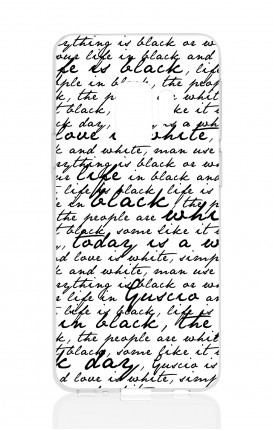 ything is black or w
our life in black and
fe is black, life
ple in bl , the peop
k, the p in white,
t black, ke it
ck day, a wh
love i white,
k and white, man use
rything is black or
ur life in black an
t life is black life is
e in black, the p
the people are whi
t black, some like it
, today is a w
d love is white, simp
k and white, man
rything is black or
e life in Guscio an
t life is black, life is
in black, the
k, the people are whi
t black, some like it
k day, Guscio is
d love is white, simp